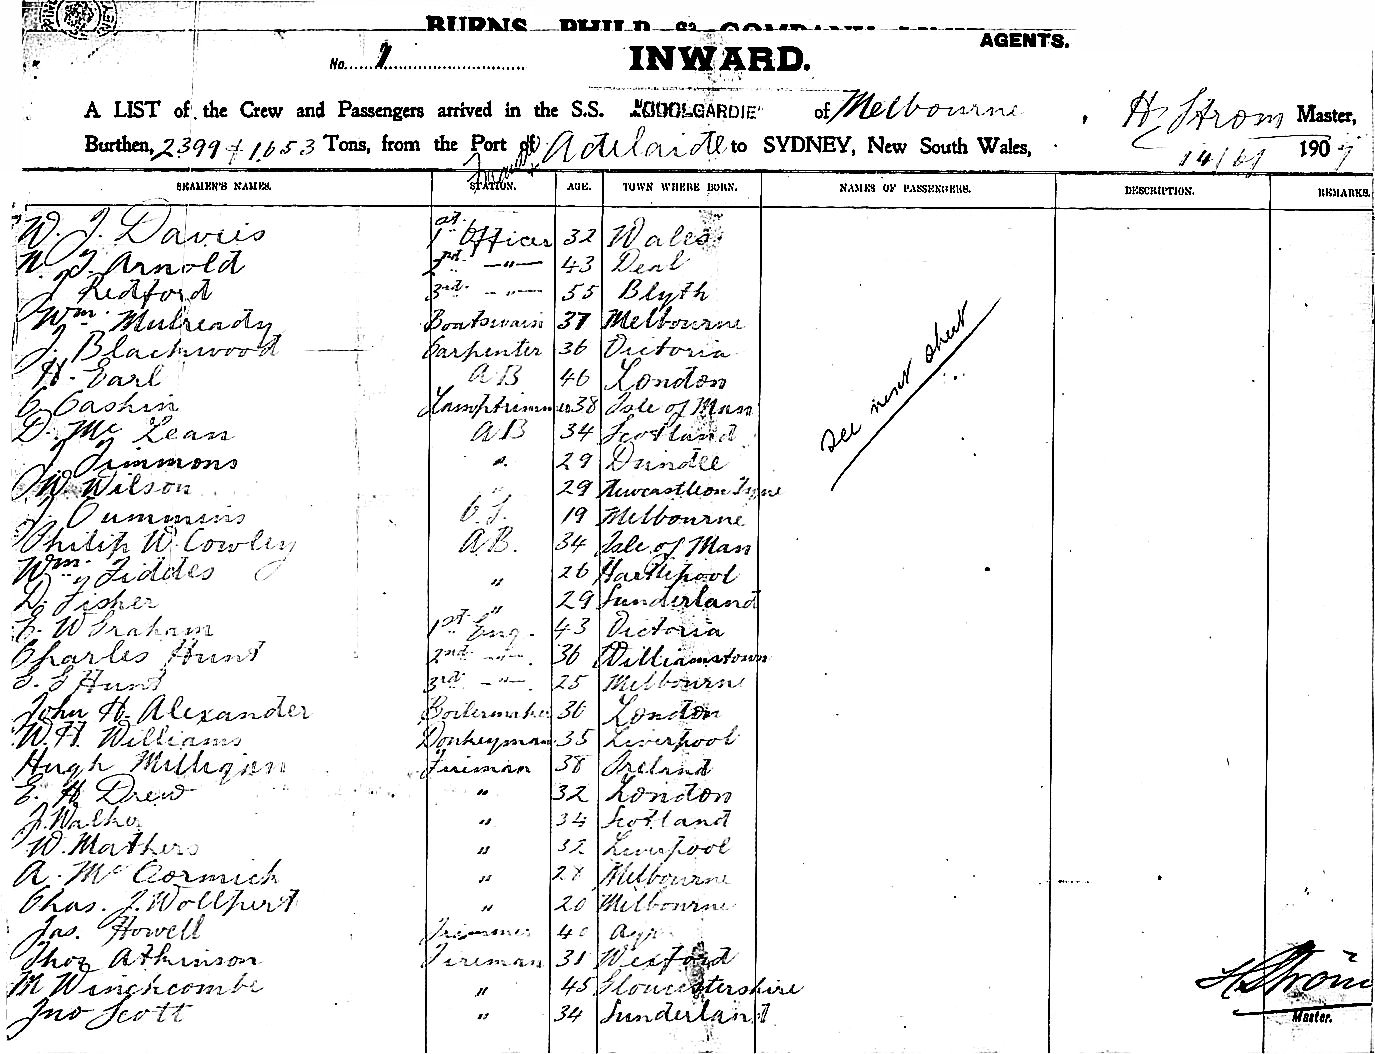 BURNS, PHILP & COMPANY
AGENTS.
No. 7 INWARD.
A LIST of the Crew and Passengers arrived in the S.S. "COOLGARDIE" of Melbourne, H Strom Master,
Burthen, 2399 + 1653 Tons, from the Port of Adelaide to SYDNEY, New South Wales, 190
SEAMEN'S NAMES. STATION. AGE. TOWN WHERE BORN. NAMES OF PASSENGERS. DESCRIPTION. REMARKS.
W. J. Davies 1st Officer 32 Wales
J. Arnold 2nd -"- 43 Deal
J Redford 3rd -"- 55 Blyth
Wm. Mulready Boatswain 37 Melbourne
J. Blackwood Carpenter 36 Victoria
H. Earl AB 46 London
C. Cashin Lamptrimmer 38 Isle of Man
D. Mc Lean AB 34 Scotland
J. Timmons " 29 Dundee
W. Wilson " 29 Newcastle on Tyne
J. Cummins O.S. 19 Melbourne
Philip W. Cowley A.B. 34 Isle of Man
Wm. Fiddes " 26 Hartlepool
D. Fisher " 29 Sunderland
E. W Graham 1st Eng. 43 Victoria
Charles Hunt 2nd -"- 36 Williamstown
Hunt 3rd -"- 25 Melbourne
John H. Alexander Boilermaker 36 London
W. H. Williams Donkeyman 35 Liverpool
Hugh Milligan Fireman 38 Ireland
E. H. Drew " 32 London
J. Walker " 34 Scotland
W. Mathers " 32 Liverpool
A. Mc Cormick " 28 Melbourne
Chas. J. Wollpert " 20 Melbourne
Jas. Howell Trimmer Ayr
Thos Atkinson Fireman 31 Wexford
M Winchcombe " 45 Gloucestershire
Jno Scott " 34 Sunderland
see next sheet
H Strom
Master.